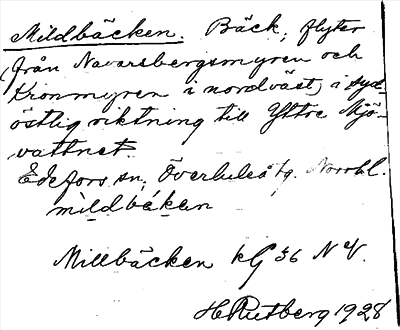 Mildbäcken. Bäck, flyter
från Navarsbergsmyren och
Kronmyren i nordväst, i syd-
östlig riktning till Yttre Mjö-
vattnet.
Edefors sn, Överluleå tg. Norrbl.
mildbäkan
Millbäcken kG 36 N V.
H Rutberg 1928